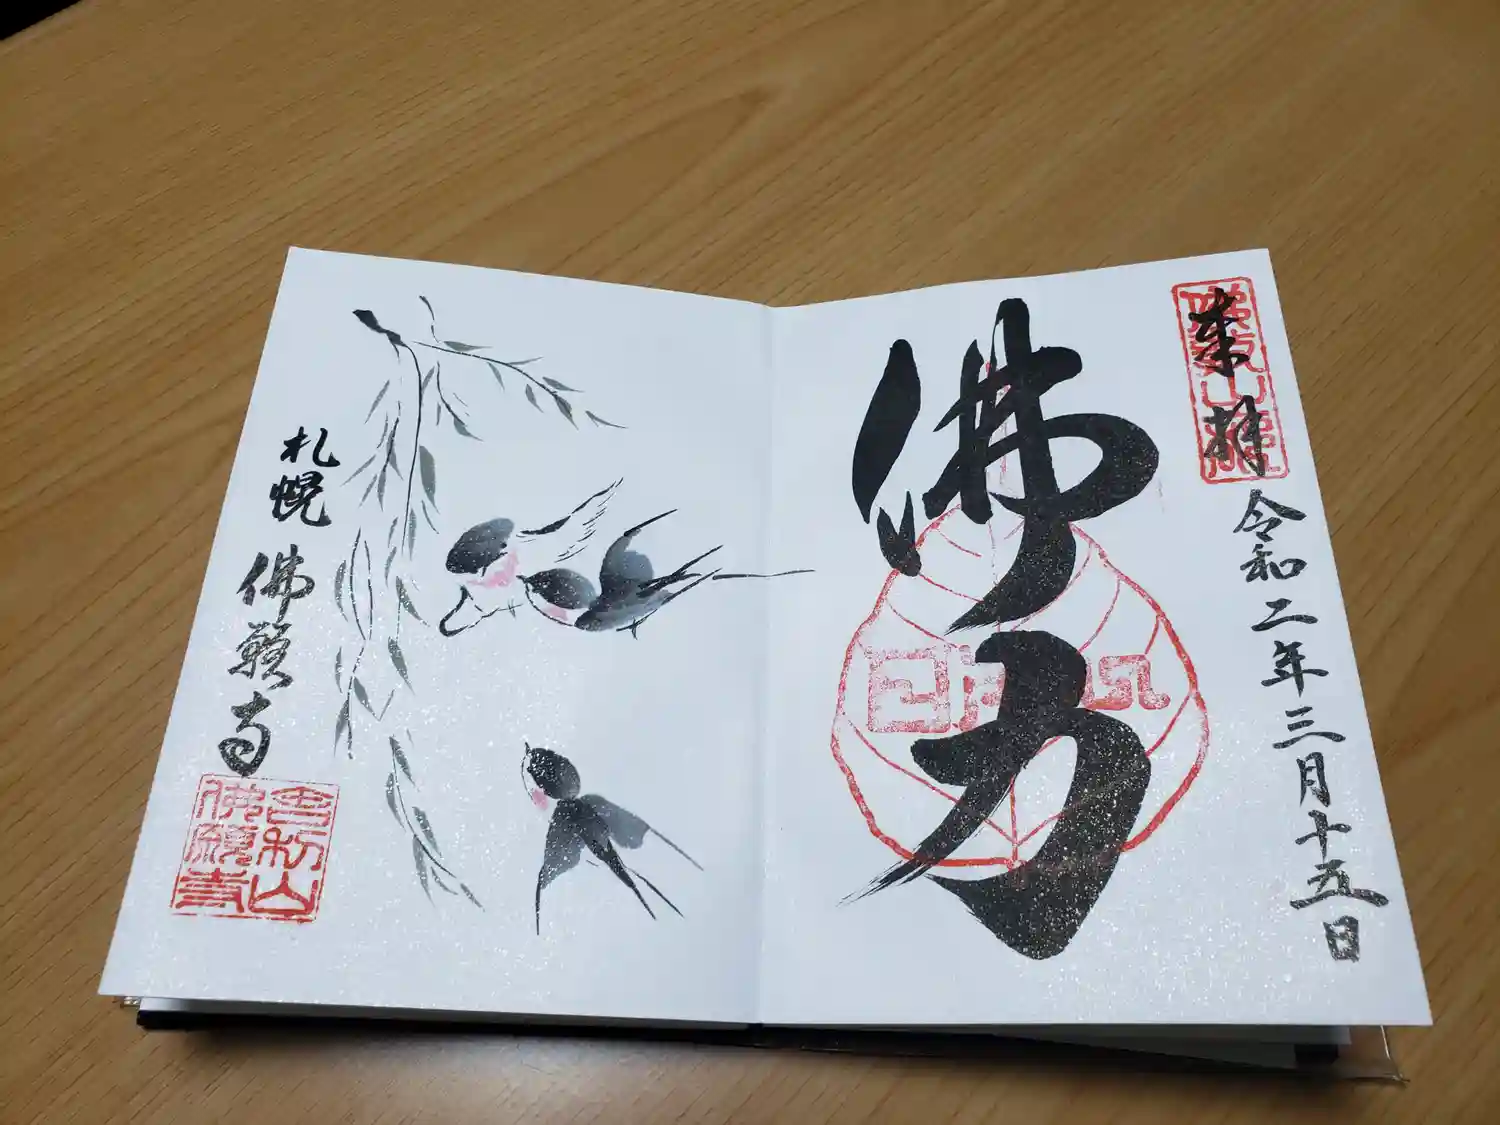 来拝
令和二年三月十五日
佛力
札幌
佛願寺
舎利山
佛願寺